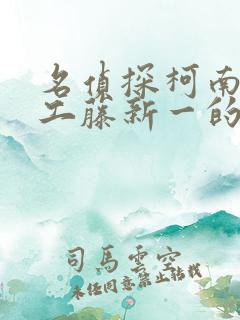 名侦探柯南
工藤新一的
司马云空
未经同意禁止转载